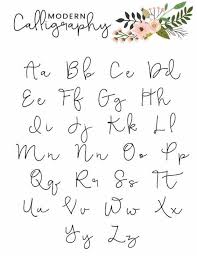 MODERN
Calligraphy
Aa Bb Cc Dd
Ee Ff Gg Hh
Ii Jj Kk Ll
Mm Nn Oo Pp
Qq Rr Ss Tt
Uu Vv Ww Xx
Yy Zz